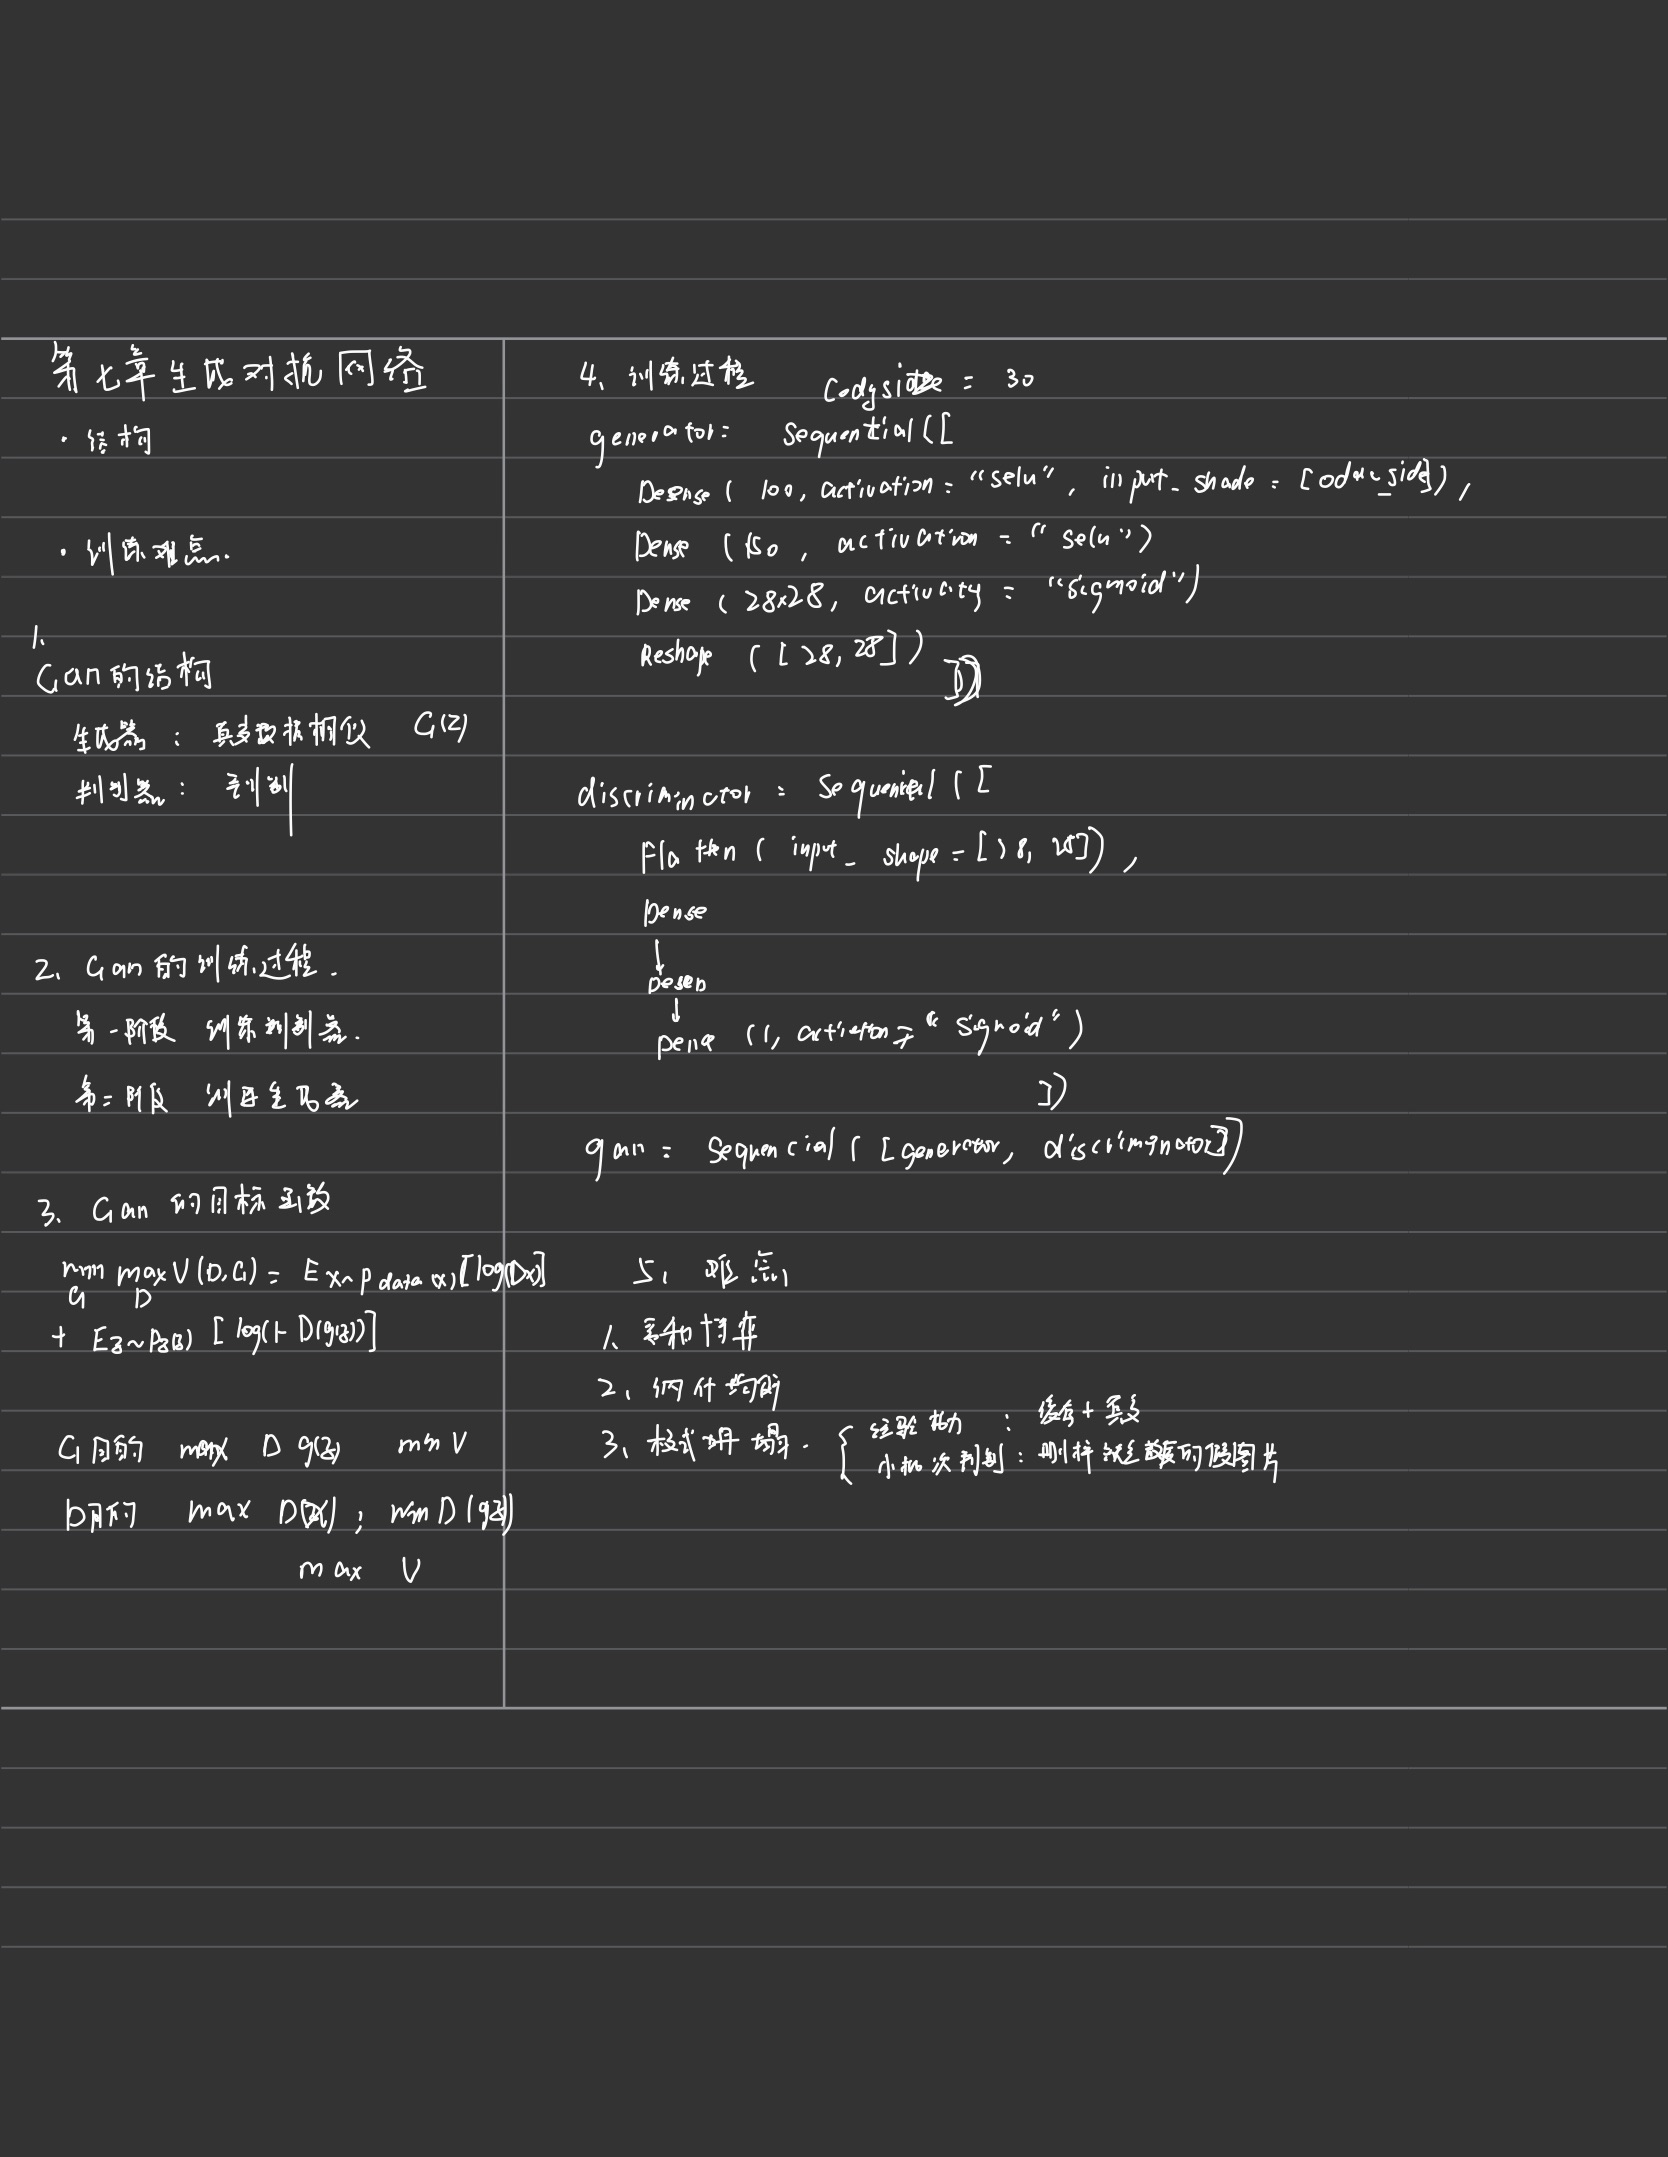 第七章生成对抗网络
· 结构
· 训练难点.
1.
Gan的结构
生成器 : 真多数据相似 G(z)
判别器 : 判别
2. Gan 的训练过程.
第一阶段 训练判别器.
第二阶段 训练生成器
3. Gan 的目标函数
min max V(D,G) = E x~p data(x) [log(Dx)]
G D
+ Ez~Pz(z) [log(1-D(g(z)))]
G目的 max D g(z) min V
D目的 max D(x) ; min D(g(z))
max V
4. 训练过程 Codysize = 30
generator = Sequential([
Desnse ( 100, activation = "selu", input_shade = [oduc_side]),
Dense (150, activation = "selu")
Dense (28x28, activaty = "sigmoid")
Reshape ([28, 28])
])
discriminator = Sequential ([
Flatten ( input_shape = [28, 28]),
Dense
↓
Desen
↓
Dense (1, activation = "Sigmoid")
])
gan = Sequencial ([generator, discriminator])
5. 难点
1. 零和博弈
2. 纳什均衡
3. 模式坍塌. { 经验 : 缓存 + 更多
小批次判别 : 删掉 的假图片